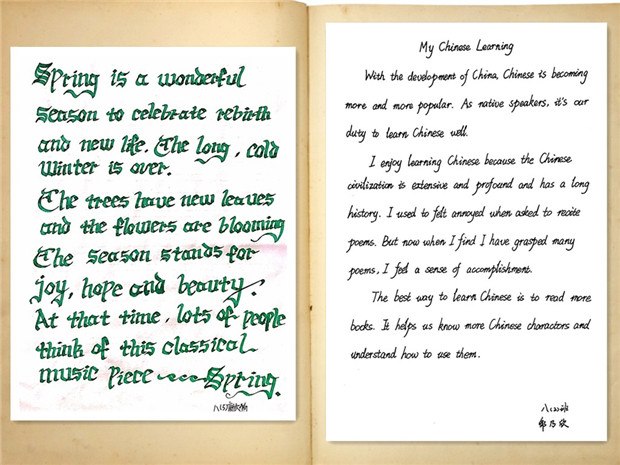 Spring is a wonderful
season to celebrate rebirth
and new life. The long, cold
winter is over.
The trees have new leaves
and the flowers are blooming
The season stands for
joy, hope and beauty.
At that time, lots of people
think of this classical
music piece ~~~~Spring.
My Chinese Learning
With the development of China, Chinese is becoming
more and more popular. As native speakers, it's our
duty to learn Chinese well.
I enjoy learning Chinese because the Chinese
civilization is extensive and profound and has a long
history. I used to felt annoyed when asked to recite
poems. But now when I find I have grasped many
poems, I feel a sense of accomplishment.
The best way to learn Chinese is to read more
books. It helps us know more Chinese charactors and
understand how to use them.